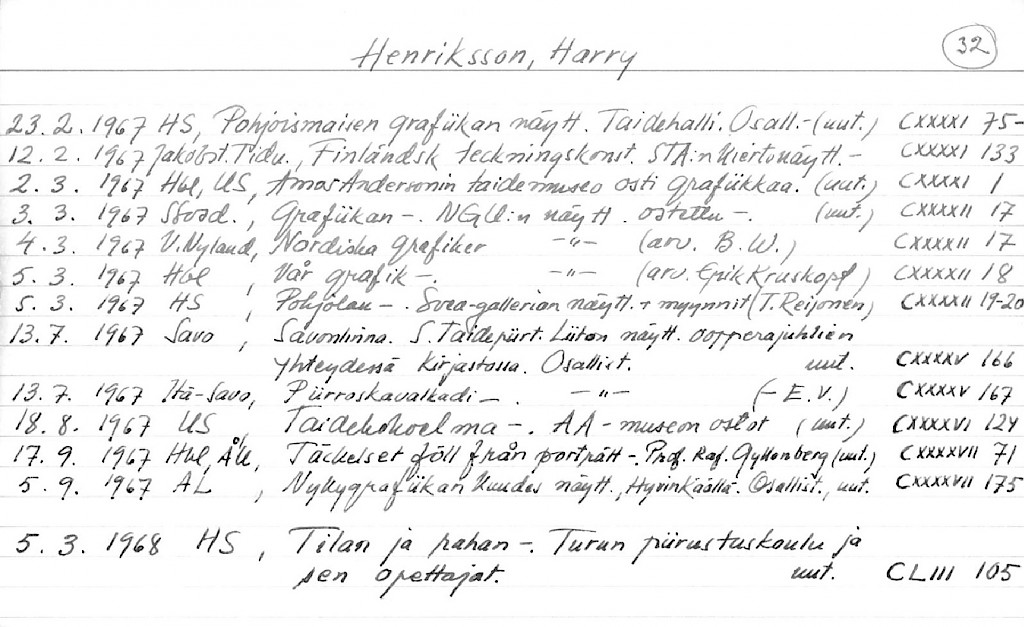 Henriksson, Harry
32
23.2. 1967 HS, Pohjoismaisen grafiikan näytt. Taidehalli. Osall.-(uut.) CXXXXI 75-
12.2. 1967 Jakobst.Tidn., Finländsk teckningskonst. STA:n kiertonäytt.- CXXXXI 133
2. 3. 1967 Hbl, US, Amos Andersonin taidemuseo osti grafiikkaa. (uut.) CXXXXI 1
3. 3. 1967 Ssosd., Grafiikan -. NGU:n näytt. ostettu -. (uut.) CXXXXII 17
4.3. 1967 V.Nyland, Nordiska grafiker -"- (arv. B.W.) CXXXXII 17
5.3. 1967 Hbl , Vår grafik -. -"- (arv. Erik Kruskopf) CXXXXII 18
5.3. 1967 HS , Pohjolan -. Svea-gallerian näytt. + myynnit (T. Reijonen) CXXXXII 19-20
13.7. 1967 Savo , Savonlinna. S.Taidepiirt. Liiton näytt. oopperajuhlien
yhteydessä Kirjastossa. Osallist. uut. CXXXXV 166
13.7. 1967 Itä-Savo, Piirroskavalkadi -. -"- (-E.V.) CXXXXV 167
18.8. 1967 US , Taidekokoelma -. AA-museon ostot (uut.) CXXXXVI 124
17.9. 1967 Hbl, ÅU, Täckelset föll från porträtt -. Prof. Raf. Gyllenberg (uut.) CXXXXVII 71
5.9. 1967 AL , Nykygrafiikan kuudes näytt., Hyvinkäällä. Osallist., uut. CXXXXVII 175
5.3. 1968 HS , Tilan ja rahan -. Turun piirustuskoulu ja
sen opettajat. uut. CLIII 105